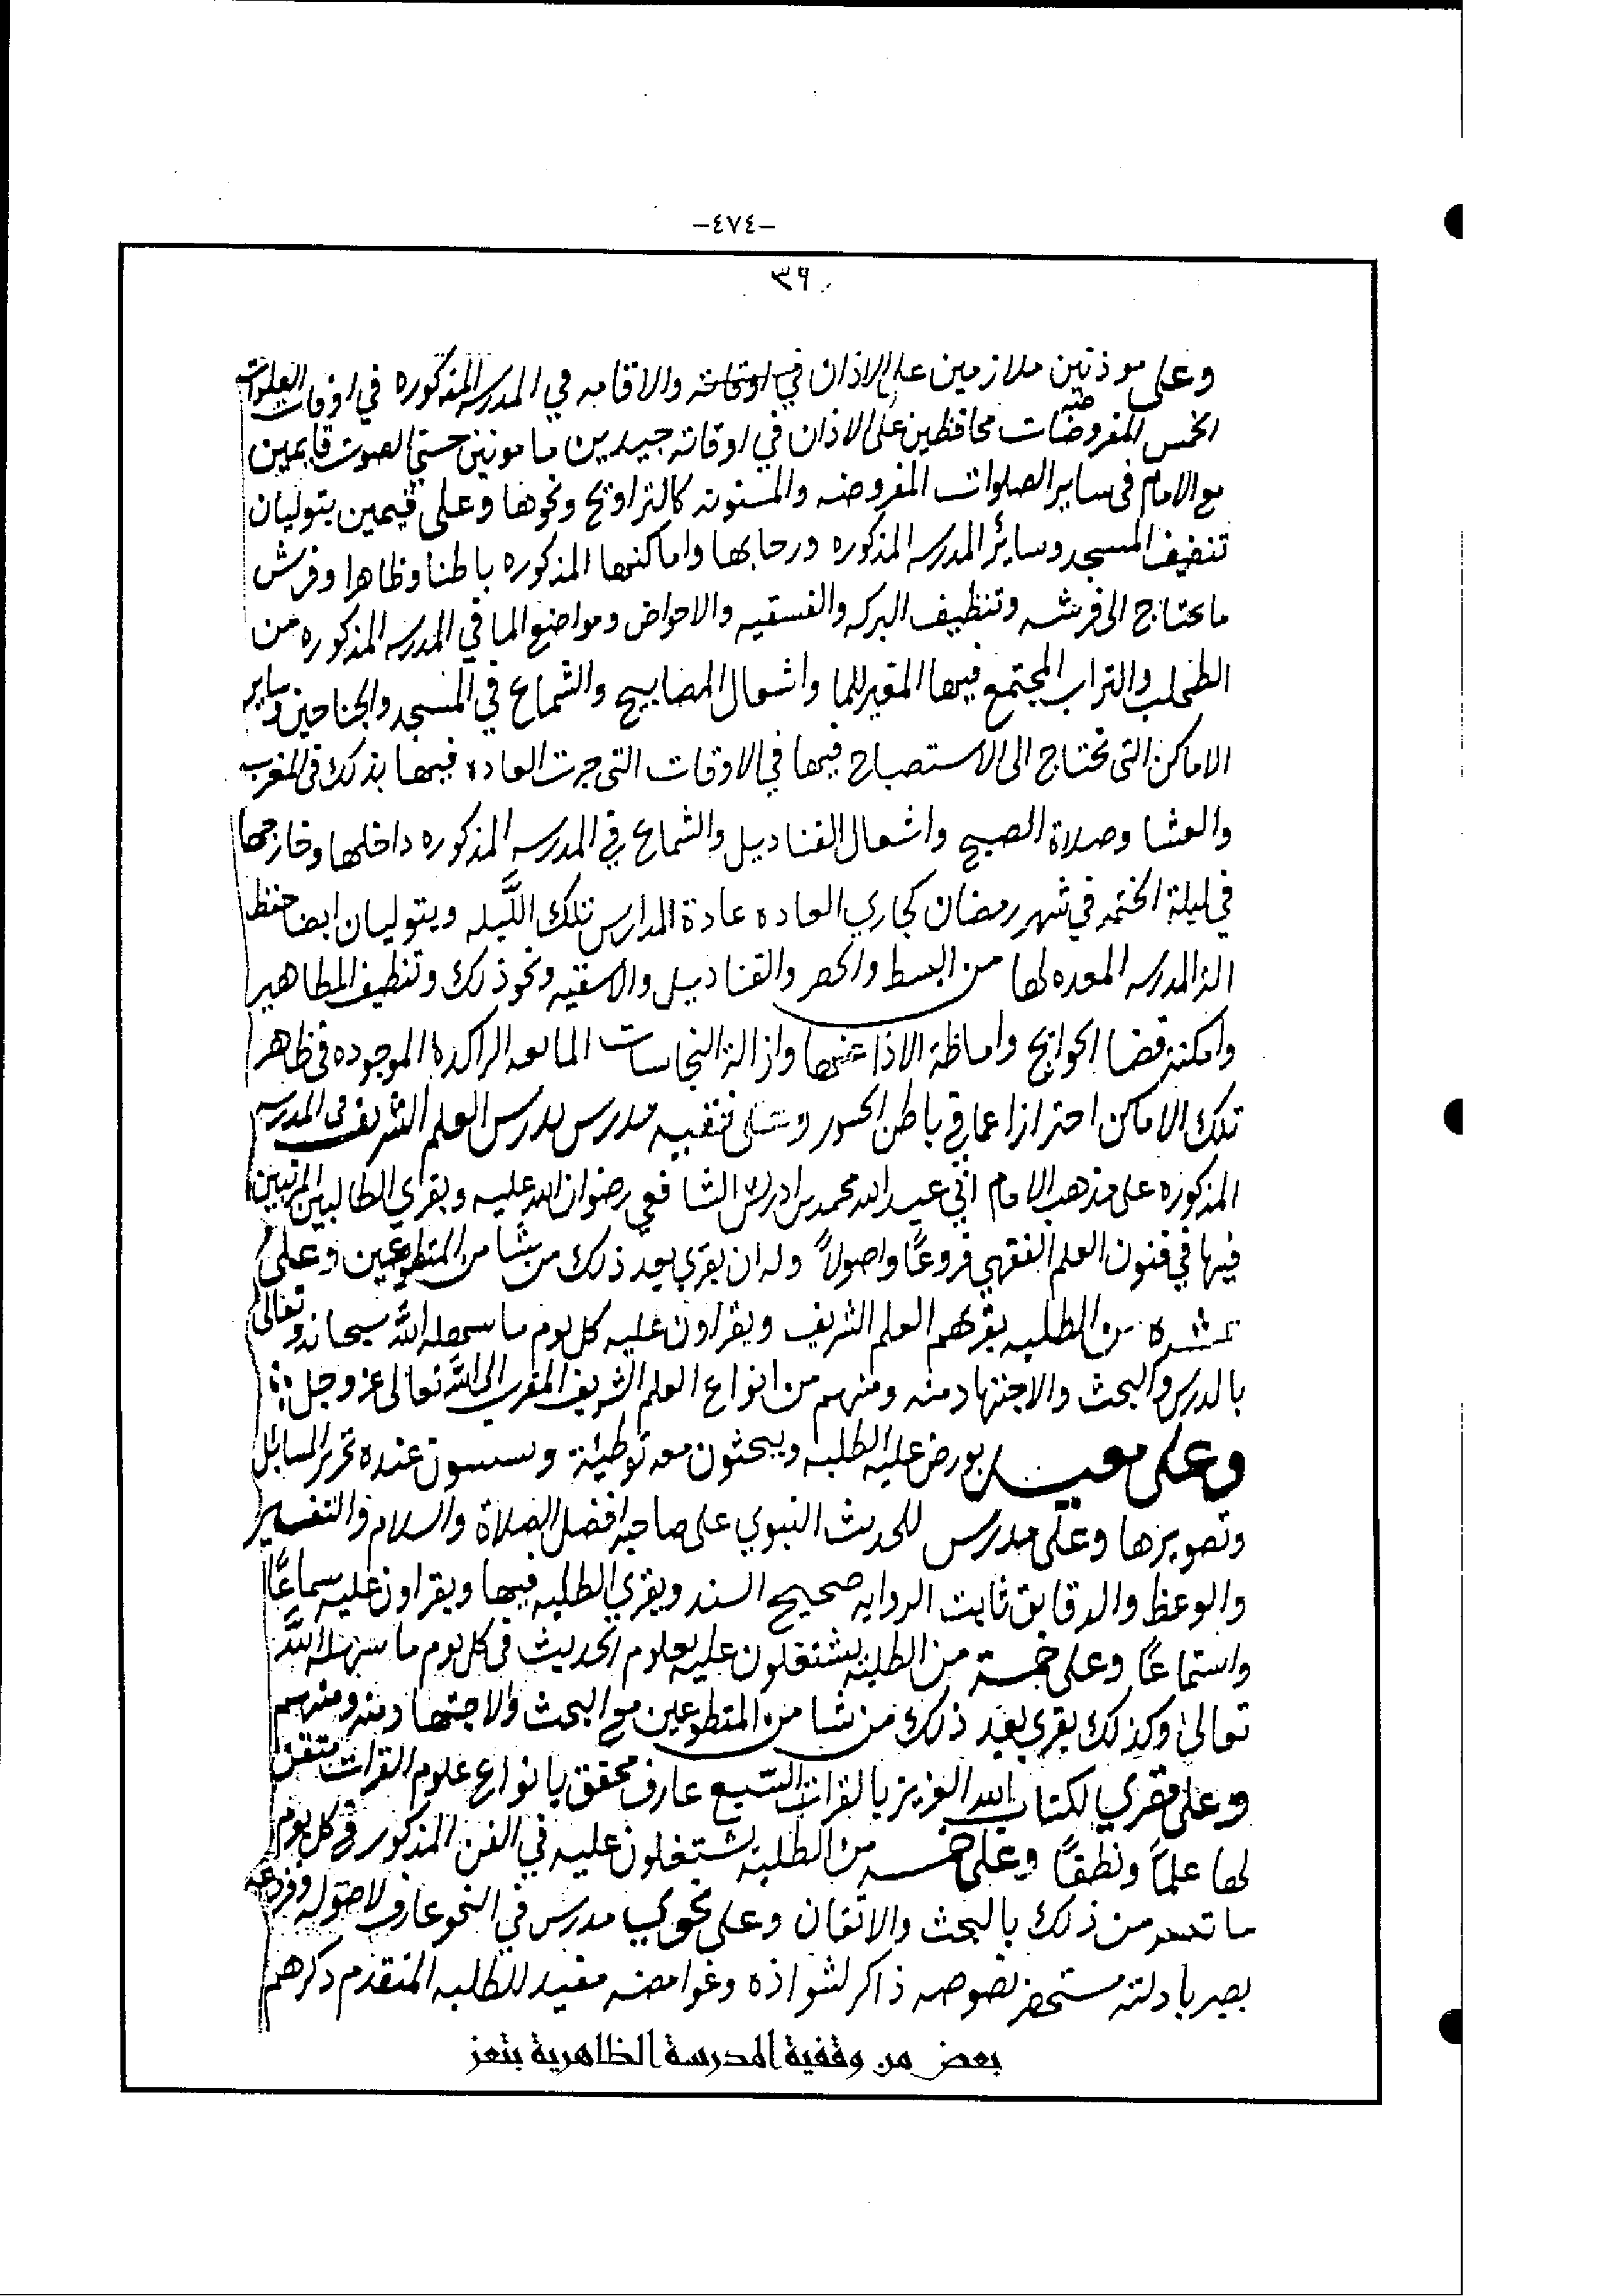 -٤٧٤-
٣٩
وعلى موذنين ملازمين على الاذان في اوقاته والاقامه في المدرسه المذكوره في اوقات الصلوات
الخمس المفروضات محافظين على الاذان في اوقاته جيدين مامونين حسني الصوت قايمين
مع الامام في ساير الصلوات المفروضه والمسنونه كالتراويح ونحوها وعلى قيمين يتوليان
تنضيف المسجد وسائر المدرسه المذكوره ورحابها واماكنها المذكوره باطنا وظاهرا وفرش
ما يحتاج الى فرشه وتنظيف البركه والفسقيه والاحواض ومواضع الما في المدرسه المذكوره من
الطحلب والتراب المجتمع فيها المغير للما واشعال المصابيح والشماع في المسجد والجناحين وساير
الاماكن التي تحتاج الى الاستصباح فيها في الاوقات التي جرت العاده فيها بذلك في المغرب
والعشا وصلاة الصبح واشعال القناديل والشماع في المدرسه المذكوره داخلها وخارجها
في ليلة الختمه في شهر رمضان كجاري العاده عادة المدارس تلك اللَّيله ويتوليان ايضا حفظ
الة المدرسه المعده لها من البسط والحصر والقناديل والاسقيه ونحو ذلك وتنظيف المطاهير
وامكنة قضا الحوايج واماطة الاذا عنها وازالة النجاسات المايعه الراكده الموجوده في ظاهر
تلك الاماكن احترازا عما في باطن وعلى فقيه مدرس يدرس العلم الشريف في المدرسه
المذكوره على مذهب الامام ابي عبد الله محمد بن ادريس الشافعي رضوان الله عليه ويقري الطالبين المرتبين
فيها في فنون العلم الفقهي فروعًا واصولاً وله ان يقري بعد ذلك من يشا من المتطوعين وعلى
عشره من الطلبه يقريهم العلم الشريف ويقراون عليه كل يوم ما سهله الله سبحانه وتعالى
بالدرس والبحث والاجتهاد منه ومنهم من انواع العلم الشريف المقرب الى الله تعالى عز وجل
وعلى معيد يعرض عليه الطلبه ويبحثون معه توطيئة عنده تحرير المسائل
وتصويرها وعلى مدرس للحديث النبوي على صاحبه افضل الصلاة والسلام والتفسير
والوعظ والدقايق ثابت الروايه صحيح السند ويقري الطلبه فيها ويقراون عليه سماعًا
واستماعًا وعلى خمسة من الطلبة يشتغلون عليه بعلوم الحديث في كل يوم ما سهله الله
تعالى وكذلك يقري بعد ذلك من شا من المتطوعين مع البحث والاجتهاد منه ومنهم
وعلى مقري لكتاب الله العزيز بالقرات السبع عارف محقق بانواع علوم القرات متقن
لها علمًا ونطقًا وعلى خمسه من الطلبة يشتغلون عليه في الفن المذكور في كل يوم
ما تيسر من ذلك بالبحث والاتقان وعلى نحوي مدرس في النحو عارف لاصوله وفروعه
بصير بادلته مستحضر نصوصه ذاكر لشواذه وغوامضه مفيد للطلبه المتقدم ذكرهم
بعض من وقفية المدرسة الظاهرية بتعز